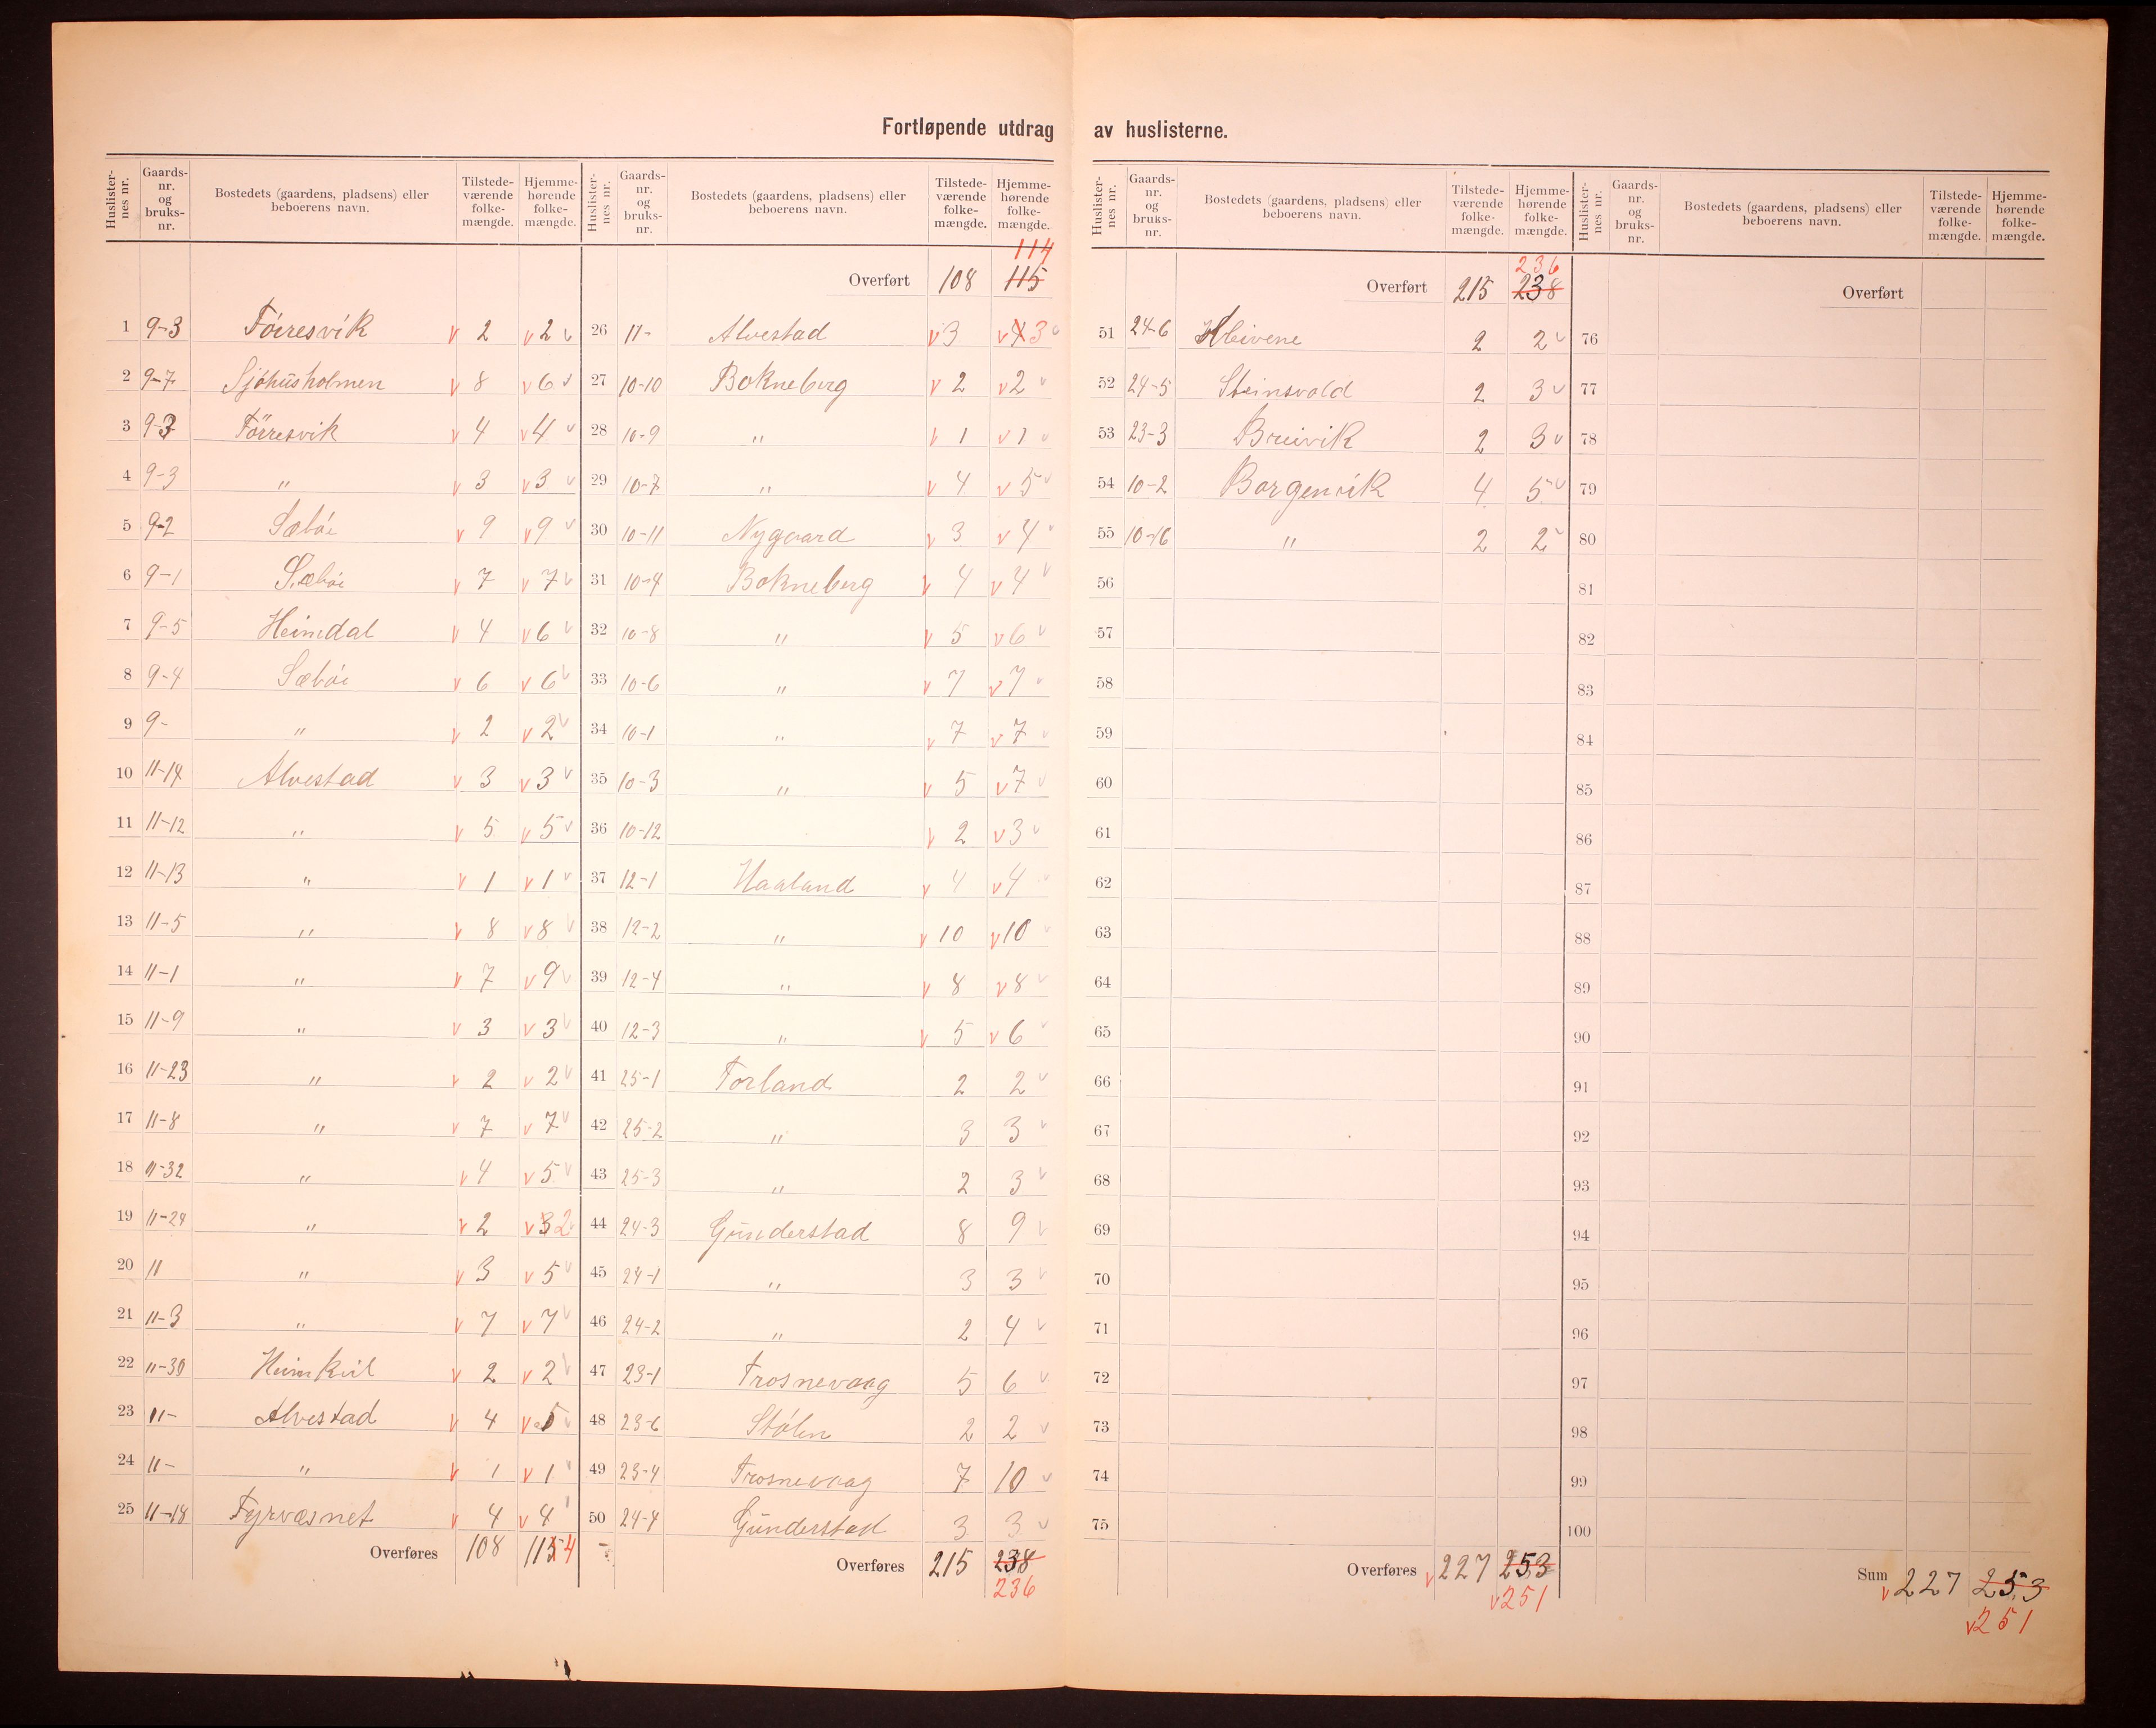 Fortløpende utdrag av huslisterne.
Huslisternes nr. Gaards-nr. og bruks-nr. Bostedets (gaardens, pladsens) eller beboerens navn. Tilstedeværende folkemængde. Hjemmehørende folkemængde.
1 9-3 Förresvik v 2 v 2 v
2 9-7 Sjøhusholmen v 8 v 6 v
3 9-3 Förresvik v 4 v 4 v
4 9-3 " v 3 v 3 v
5 9-2 Sæbøi v 9 v 9 v
6 9-1 Sæbøi v 7 v 7 v
7 9-5 Heimdal v 4 v 6 v
8 9-4 Sæbøi v 6 v 6 v
9 9- " v 2 v 2 v
10 11-14 Alvestad v 3 v 3 v
11 11-12 " v 5 v 5 v
12 11-13 " v 1 v 1 v
13 11-5 " v 8 v 8 v
14 11-1 " v 7 v 9 v
15 11-9 " v 3 v 3 v
16 11-23 " v 2 v 2 v
17 11-8 " v 7 v 7 v
18 11-32 " v 4 v 5 v
19 11-24 " v 2 v 3 2
20 11 " v 3 v 5 v
21 11-3 " v 7 v 7 v
22 11-30 Heimkvil v 2 v 2 v
23 11- Alvestad v 4 v 5 v
24 11- " v 1 v 1 v
25 11-18 Fyrvæsnet v 4 v 4 v
Overføres 108 115 4
Huslisternes nr. Gaards-nr. og bruks-nr. Bostedets (gaardens, pladsens) eller beboerens navn. Tilstedeværende folkemængde. Hjemmehørende folkemængde.
114
Overført 108 115
26 11- Alvestad v 3 v 4 3 v
27 10-10 Bokneberg v 2 v 2 v
28 10-9 " v 1 v 1 v
29 10-7 " v 4 v 5 v
30 10-11 Nygaard v 3 v 4 v
31 10-4 Bokneberg v 4 v 4 v
32 10-8 " v 5 v 6 v
33 10-6 " v 7 v 7 v
34 10-1 " v 7 v 7 v
35 10-3 " v 5 v 7 v
36 10-12 v 2 v 3 v
37 12-1 Haaland v 4 v 4 v
38 12-2 " v 10 v 10 v
39 12-4 " v 8 v 8 v
40 12-3 " v 5 v 6 v
41 25-1 Torland 2 2 v
42 25-2 " 3 3 v
43 25-3 " 2 3 v
44 24-3 Gunderstad 8 9 v
45 24-1 " 3 3 v
46 24-2 " 2 4 v
47 23-1 Trosnevaag 5 6 v
48 23-6 Stølen 2 2 v
49 23-4 Trosnevaag 7 10 v
50 24-4 Gunderstad 3 3 v
Overføres 215 238
236
Huslisternes nr. Gaards-nr. og bruks-nr. Bostedets (gaardens, pladsens) eller beboerens navn. Tilstedeværende folkemængde. Hjemmehørende folkemængde.
236
Overført 215 238
51 24-6 Kleivene 2 2 v
52 24-5 Steinsvold 2 3 v
53 23-3 Breivik 2 3 v
54 10-2 Borgenvik 4 5 v
55 10-16 " 2 2 v
56
57
58
59
60
61
62
63
64
65
66
67
68
69
70
71
72
73
74
75
Overføres v 227 253
v 251
Huslisternes nr. Gaards-nr. og bruks-nr. Bostedets (gaardens, pladsens) eller beboerens navn. Tilstedeværende folkemængde. Hjemmehørende folkemængde.
Overført
76
77
78
79
80
81
82
83
84
85
86
87
88
89
90
91
92
93
94
95
96
97
98
99
100
Sum v 227 253
v 251